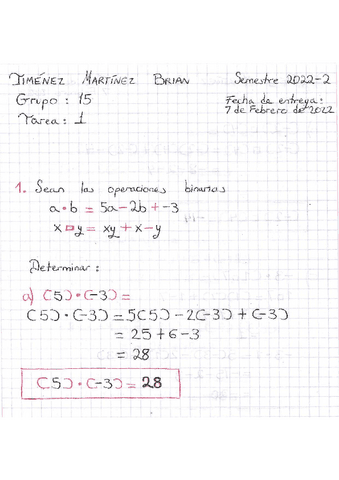 JIMÉNEZ MARTÍNEZ BRIAN Semestre 2022-2
Grupo : 15 Fecha de entrega:
7 de Febrero de 2022
Tarea : 1
1. Sean las operaciones binarias
a • b = 5a - 2b + -3
x □ y = xy + x - y
Determinar :
a) (5) • (-3) =
(5) • (-3) = 5(5) - 2(-3) + (-3)
= 25 + 6 - 3
= 28
(5) • (-3) = 28